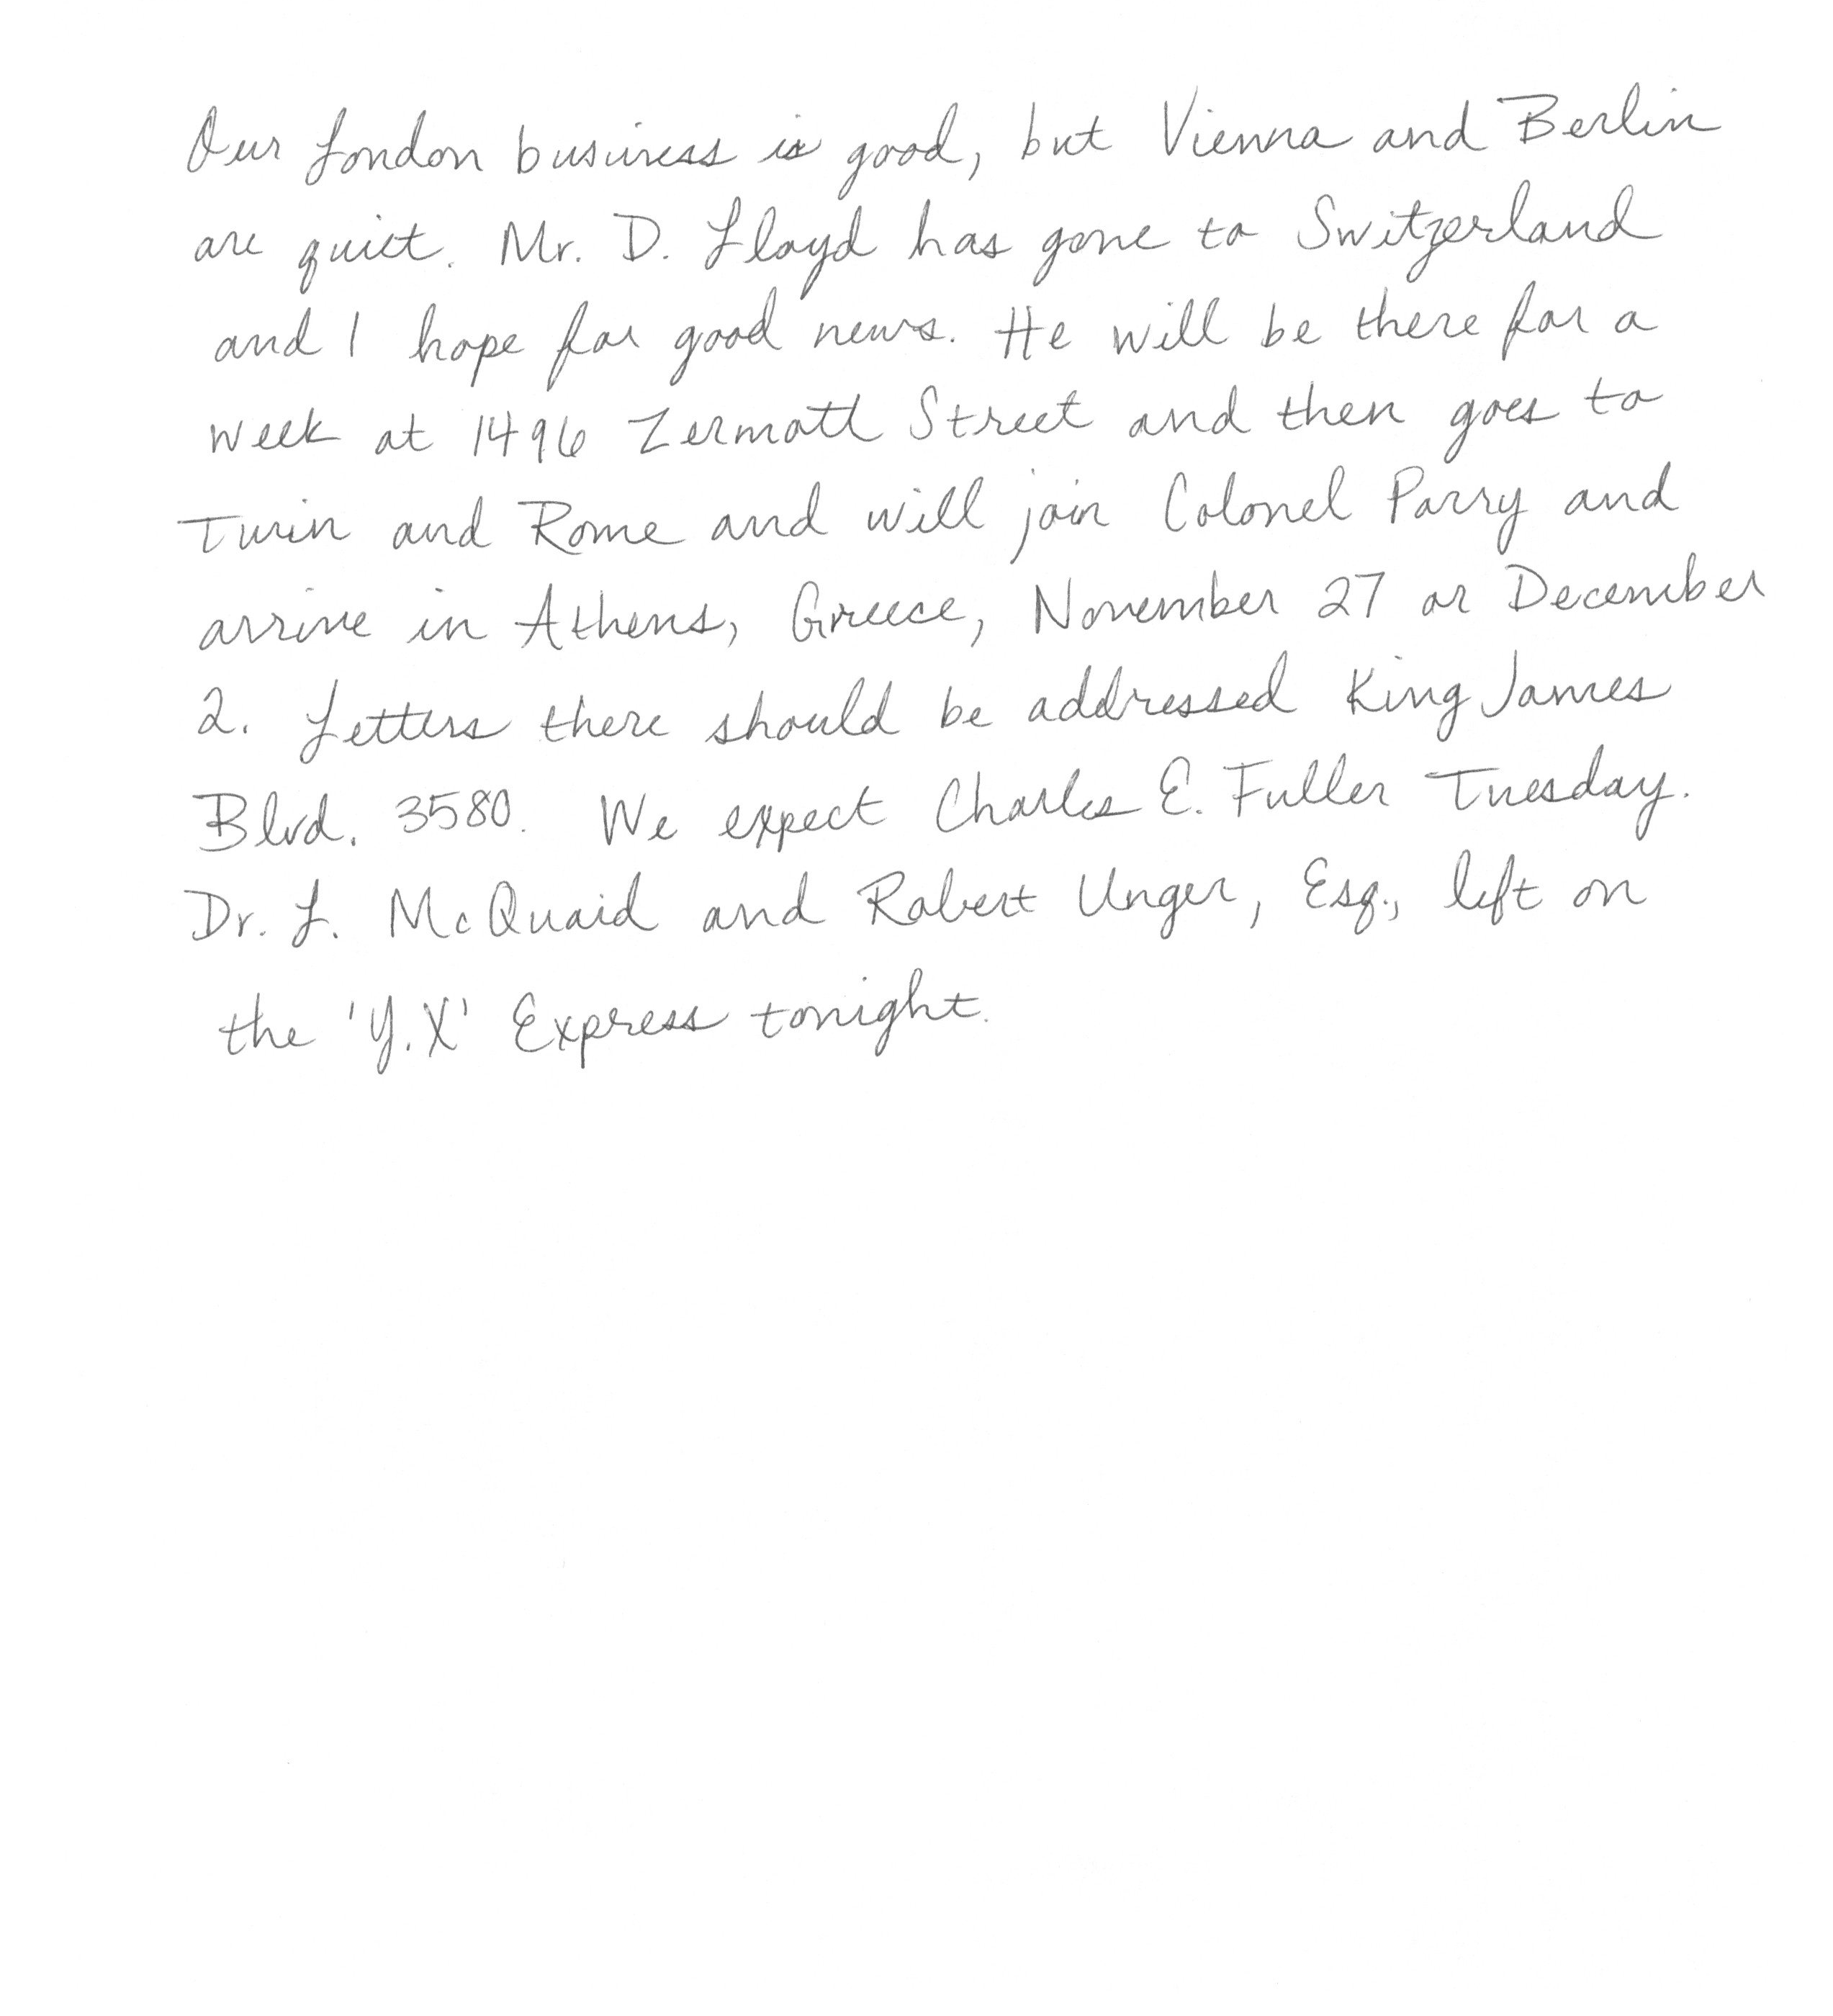 Our London business is good, but Vienna and Berlin
are quiet. Mr. D. Lloyd has gone to Switzerland
and I hope for good news. He will be there for a
week at 1496 Zermatt Street and then goes to
Turin and Rome and will join Colonel Parry and
arrive in Athens, Greece, November 27 or December
2. Letters there should be addressed King James
Blvd. 3580. We expect Charles E. Fuller Tuesday.
Dr. L. McQuaid and Robert Unger, Esq., left on
the 'Y.X' Express tonight.